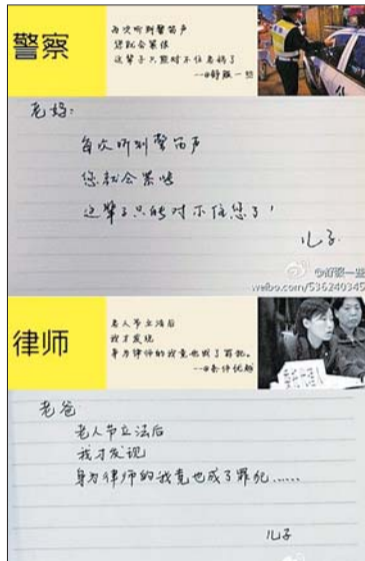 警察
每次听到警笛声
您就会紧张
这辈子只能对不住老妈了
——@舒颜一些
老妈:
每次听到警笛声
您就会紧张
这辈子只能对不住您了!
儿子
@舒颜一些
weibo.com/536240345
律师
老人节立法后
我才发现
身为律师的我竟也成了罪犯。
老爸
老人节立法后
我才发现
身为律师的我竟也成了罪犯......
儿子